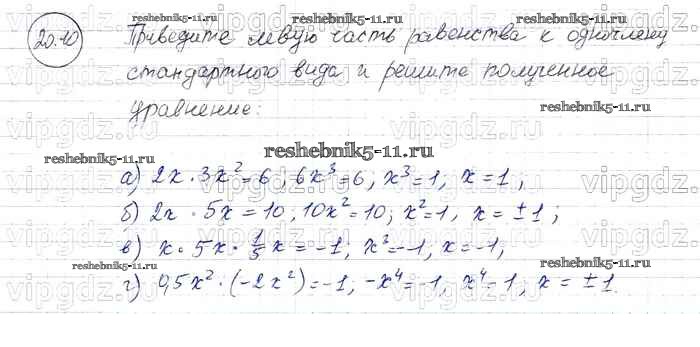 reshebnik5-11.ru reshebnik5-11.ru
20.10 Приведите левую часть равенства к одночлену
стандартного вида и решите полученное
уравнение: reshebnik5-11.ru
reshebnik5-11.ru
reshebnik5-11.ru
а) 2x · 3x² = 6; 6x³ = 6, x³ = 1, x = 1;
б) 2x · 5x = 10; 10x² = 10; x² = 1, x = ± 1;
в) x · 5x · 1/5 x = -1; x³ = -1, x = -1,
reshebnik5-11.ru reshebnik5-11.ru
г) 0,5x² · (-2x²) = -1; -x⁴ = -1, x⁴ = 1, x = ± 1.
vipgdz.ru vipgdz.ru vipgdz.ru vipgdz.ru